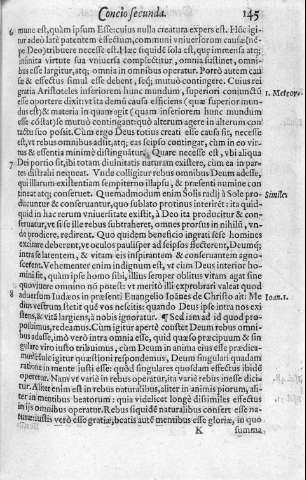 Concio secunda. 145
6 mune est, quàm ipsum Esse: cuius nulla creatura expers est. Hoc igi-
tur adeò latè patentem effectum, communi vniuersorum causæ (nẽ-
pe Deo) tribuere necesse est. Hæc siquidẽ sola est, quę immensa atq;
infinita virtute sua vniuersa complectitur, omnia sustinet, omni-
bus esse largitur, atq; omnia in omnibus operatur. Porrò autem causa
& effectus simul esse debent, seq; mutuò contingere. Cuius rei
gratia Aristoteles inferiorem hunc mundum, superiori coniunctũ
esse oportere dixit: vt ita demũ causa efficiens (quæ superior mun-
dus est) & materia in quam agit (quam inferiorem hunc mundum
esse cõstat) se mutuò contingant: quò alterum agere in alterum con-
tactu suo possit. Cum ergo Deus totius creati esse causa sit, necesse
est, vt rebus omnibus adsit, atq; eas seipso contingat, cum in eo vir-
tus & essentia minimè distinguatur. Quare necesse est, vbi aliqua
7 Dei portio sit, ibi totam diuinitatis naturam existere, cum ea in par-
tes distrahi nequeat. Vnde colligitur rebus omnibus Deum adesse,
qui illarum existentiam sempiterno illapsu, & præsenti numine con-
tineat atq; conseruet. Quemadmodum enim Solis radij à Sole pro-
ducuntur & conseruantur, quo sublato protinus interirẽt: ita quid-
quid in hac rerum vniuersitate existit, à Deo ita producitur & con-
seruatur, vt si se ille rebus subtraheret, omnes prorsus in nihilũ, vn-
de prodiere, redirent. Quo quidem beneficio ingrati sese homines
excitare deberent, vt oculos paulisper ad seipsos flecterent, Deumq;
intra se latentem, & vitam eis inspirantem & conseruantem agnos-
cerent. Vehementer enim indignum est, vt cum Deus interior ho-
mini sit, quàm ipse homo sibi, illius semper oblitus vitam agat sine
quo viuere omnino nõ potest: vt meritò illi exprobrari valeat quod
8 aduersum Iudæos in præsenti Euangelio Ioãnes de Christo ait: Me
dius vestrum stetit quẽ vos nescitis: quando Deus ipse intra nos exi
stens, & vitã largiens, à nobis ignoratur. ¶ Sed iam ad id quod pro-
posuimus, redeamus. Cum igitur apertè constet Deum rebus omni-
bus adesse, imò verò intra omnia esse, quid quæso præcipuum & sin-
gulare viro iusto tribuimus, cum Deum in anima eius esse prædica-
mus? Huic igitur quæstioni respondemus, Deum singulari quadam
ratione in mente iusti esse: quòd singulares quosdam effectus ibidẽ
operetur. Nam vt variè in rebus operatur, ita variè rebus inesse dici-
tur. Aliter enim est in rebus naturalibus, aliter in animis piorum, ali-
ter in mentibus beatorum: quia videlicet longè dissimiles effectus
in ijs omnibus operatur. Rebus siquidẽ naturalibus confert esse na-
turæ: iustis verò esse gratiæ, beatis autẽ mentibus esse gloriæ, in quo
K summa
1. Meteoro.
Similes
Ioan. 1.